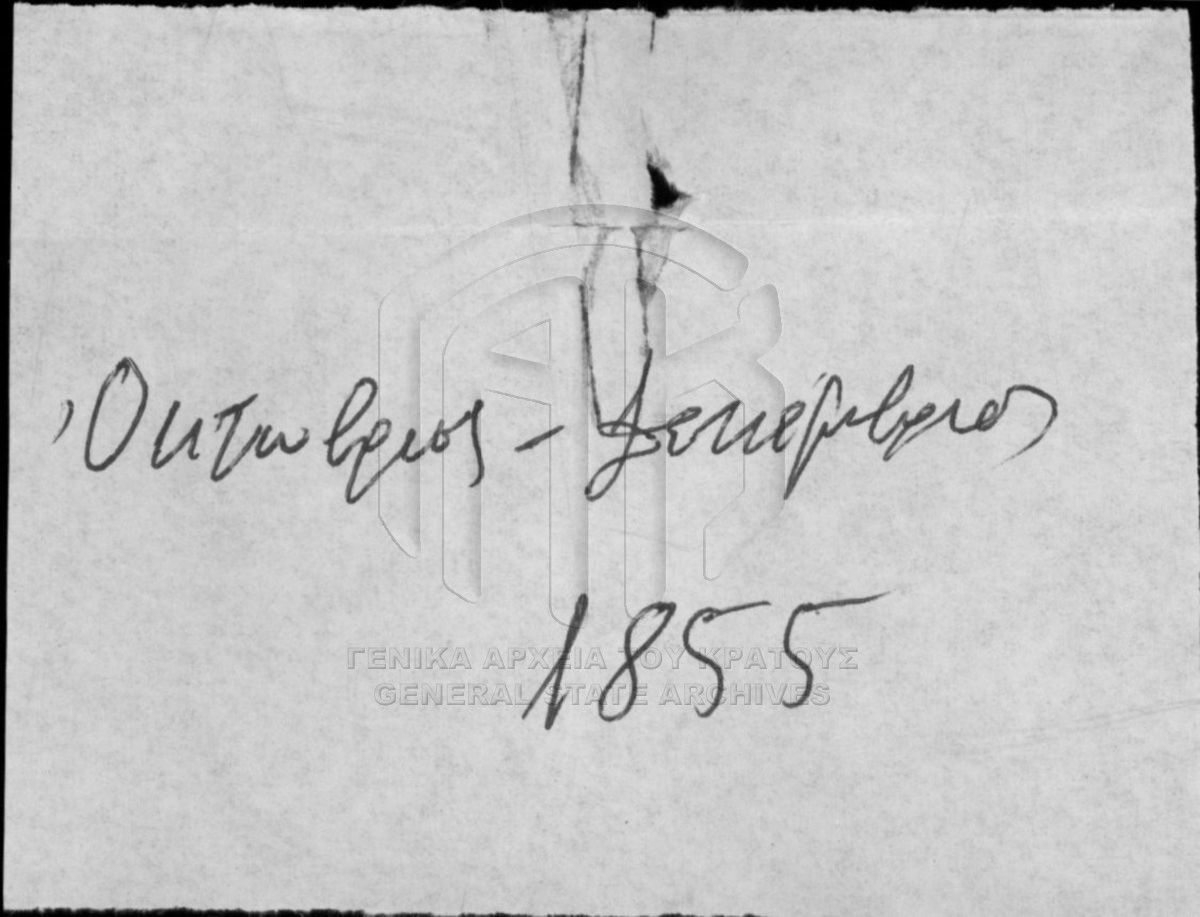 Ὀκτώβριος – Δεκέμβριος
1855
ΓΕΝΙΚΑ ΑΡΧΕΙΑ ΤΟΥ ΚΡΑΤΟΥΣ
GENERAL STATE ARCHIVES